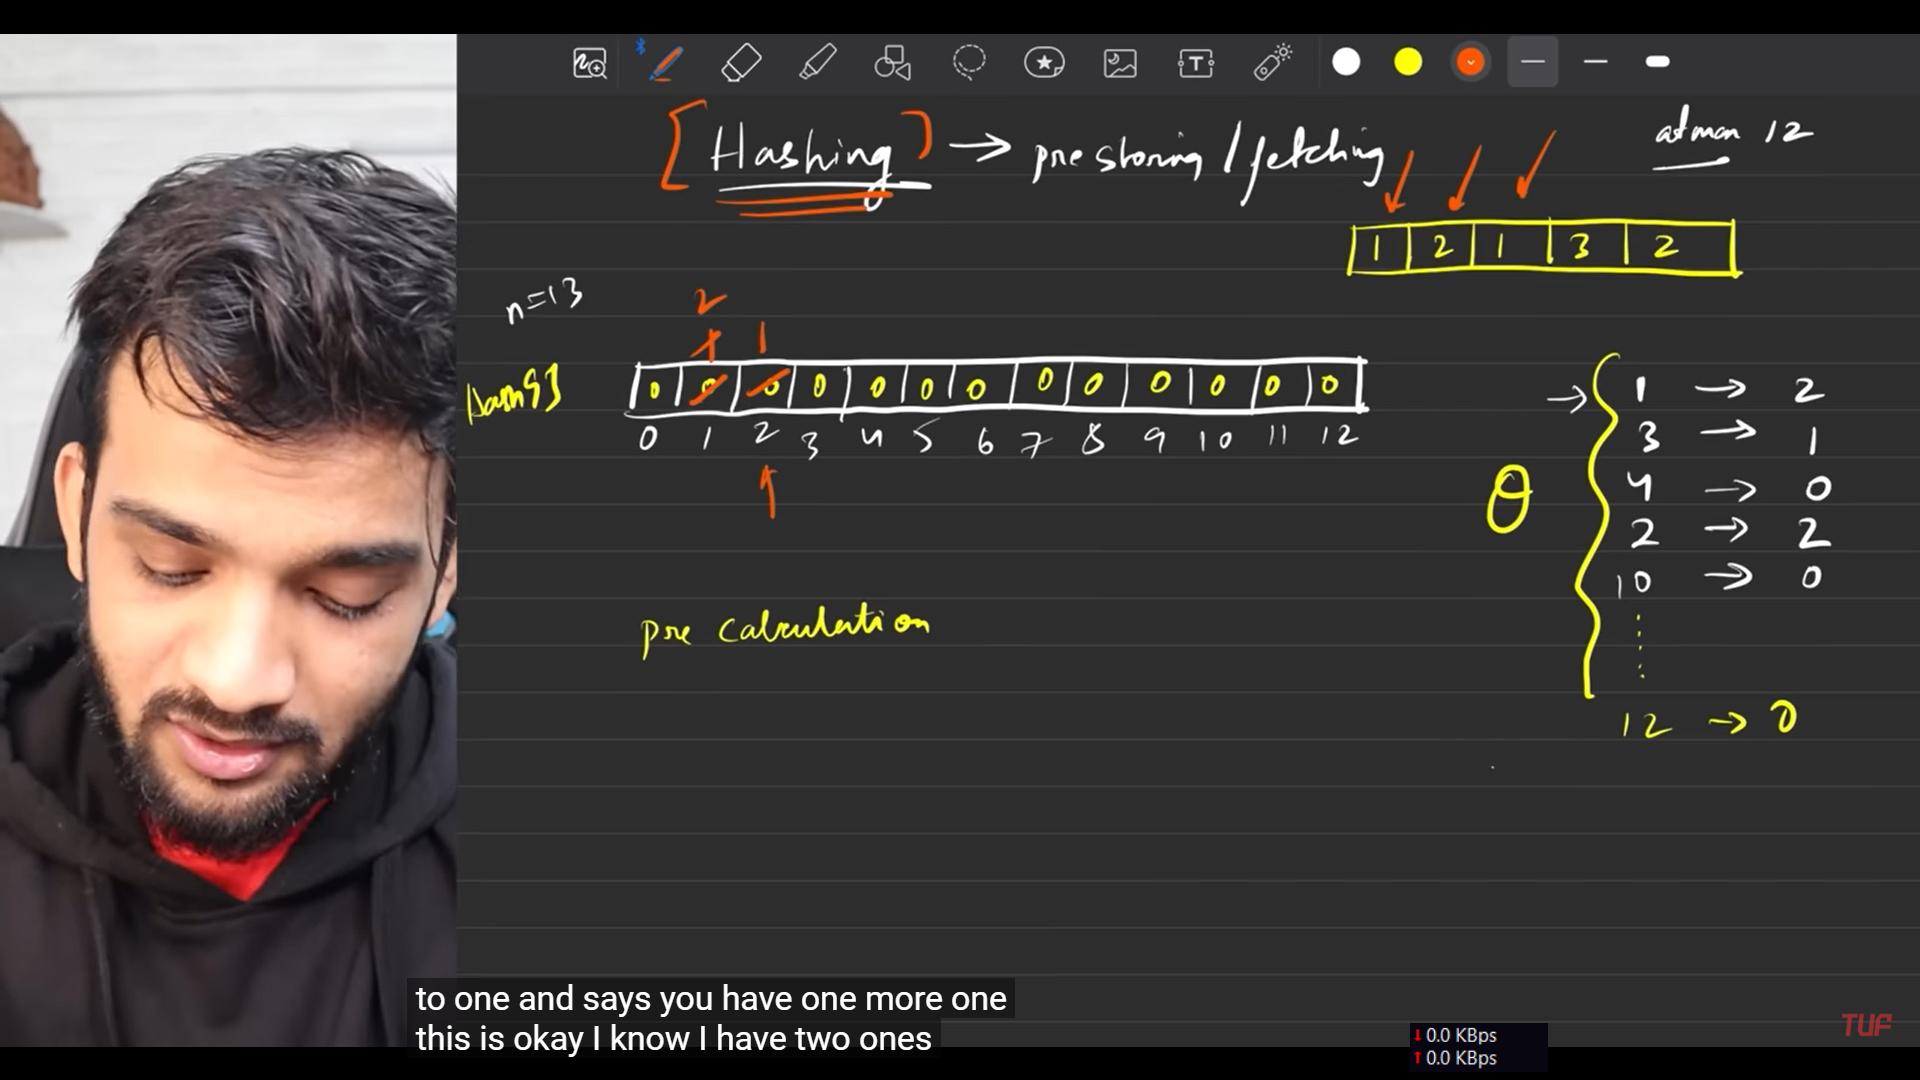 [Hashing] → pre storing / fetching
at max 12
1 2 1 3 2
n=13
2
1 1
hash[]
0 0 0 0 0 0 0 0 0 0 0 0 0
0 1 2 3 4 5 6 7 8 9 10 11 12
1 → 2
3 → 1
4 → 0
2 → 2
10 → 0
12 → 0
pre calculation
to one and says you have one more one
this is okay I know I have two ones
TUF
0.0 KBps
0.0 KBps